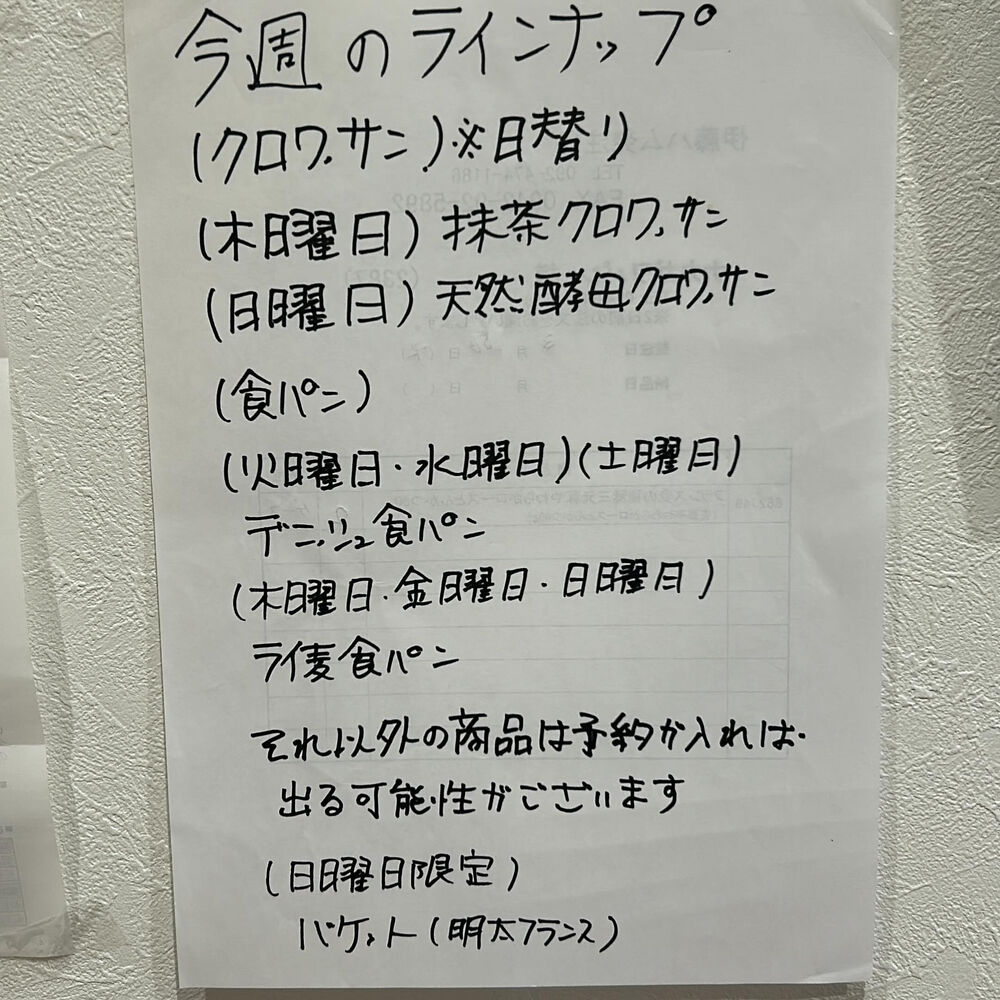 今週のラインナップ
(クロワッサン)※日替り
(木曜日)抹茶クロワッサン
(日曜日)天然酵母クロワッサン
(食パン)
(火曜日・水曜日)(土曜日)
デニッシュ食パン
(木曜日・金曜日・日曜日)
ライ麦食パン
それ以外の商品は予約が入れば
出る可能性がございます
(日曜日限定)
バケット(明太フランス)